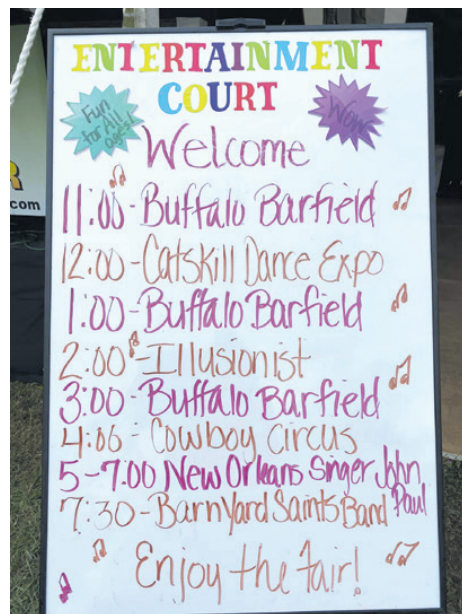 ENTERTAINMENT
COURT
Fun
for All
ages!
Wow!
Welcome
11:00-Buffalo Barfield
.com
12:00-Catskill Dance Expo
1:00-Buffalo Barfield
2:00-Illusionist
3:00-Buffalo Barfield
4:00-Cowboy Circus
5-7:00 New Orleans Singer John
Paul
7:30-BarnYard Saints Band
Enjoy the fair!